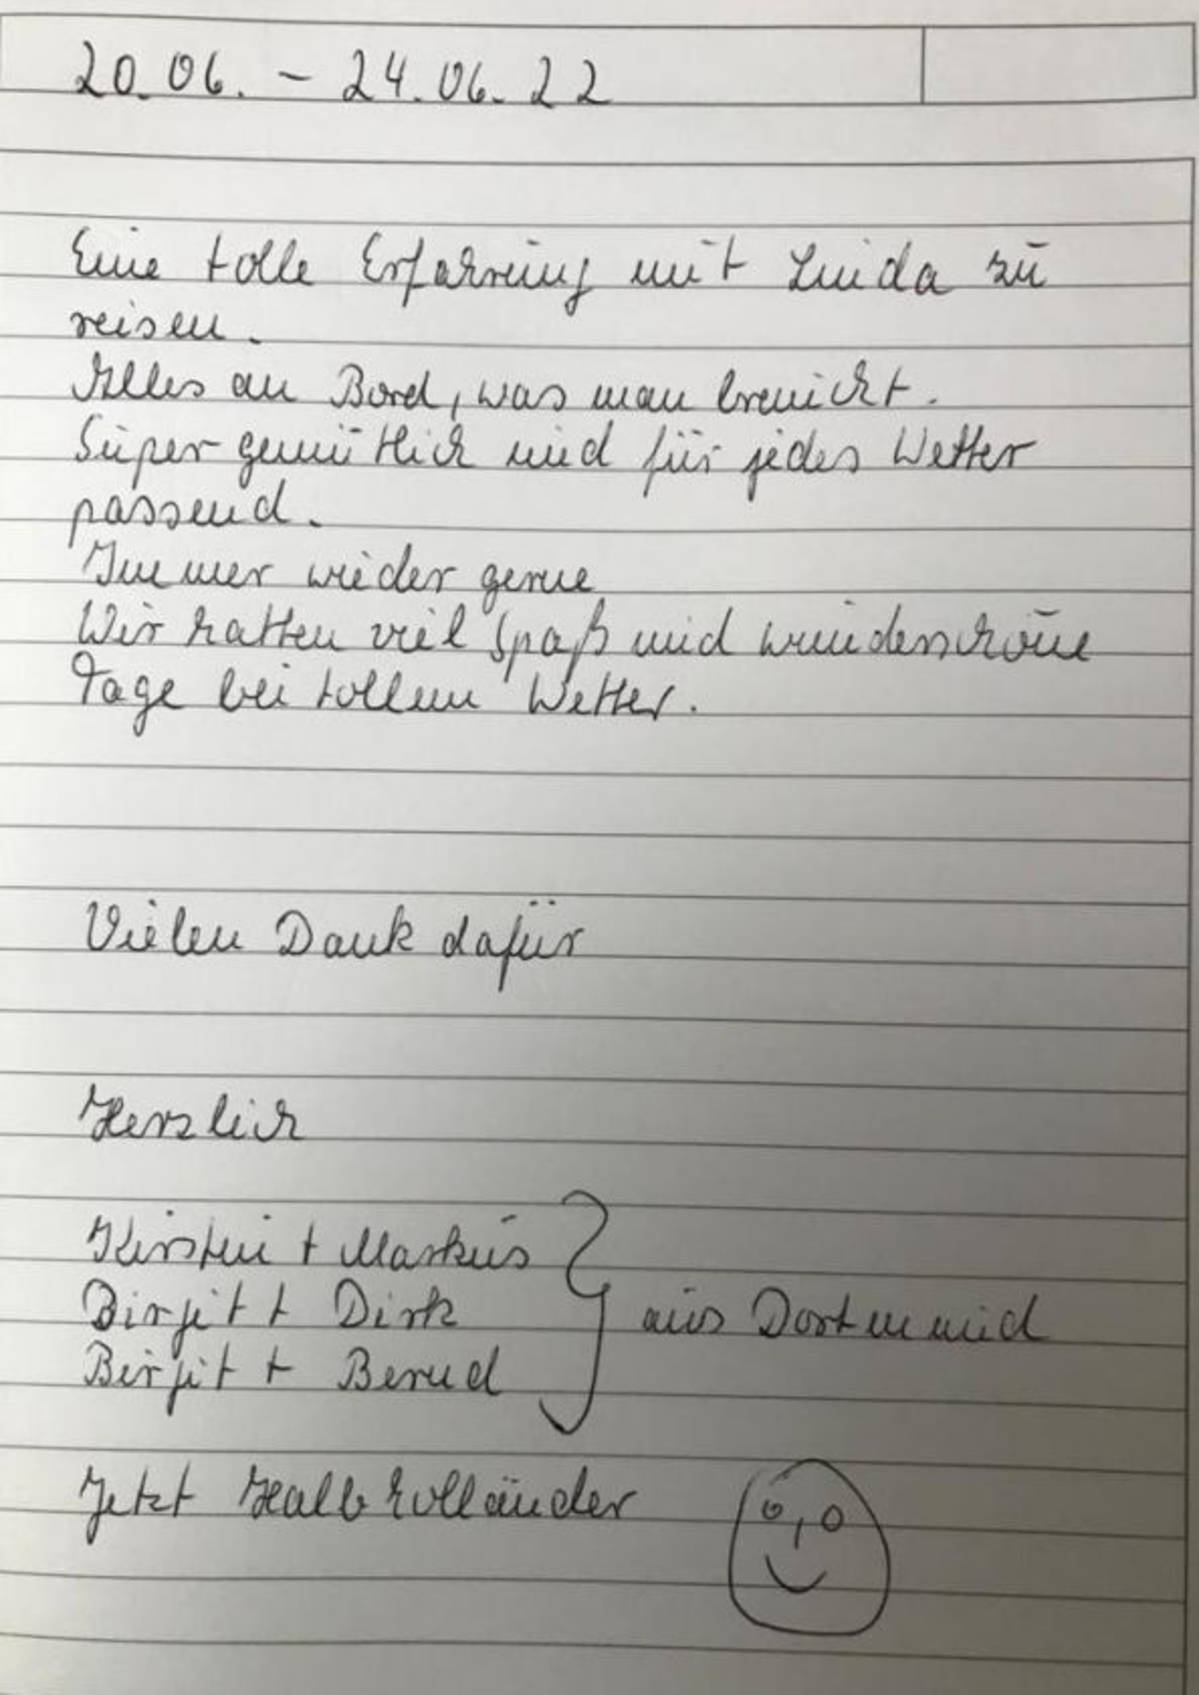 20.06. - 24.06.22
Eine tolle Erfahrung mit Linda zu
reisen.
Alles an Bord, was man braucht.
Super gemütlich und für jedes Wetter
passend.
Immer wieder gerne
Wir hatten viel Spaß und wunderschöne
Tage bei tollem Wetter.
Vielen Dank dafür
Herzlich
Kirstin + Markus
Birgit + Dirk } aus Dortmund
Birgit + Bernd
Jetzt Halbholländer